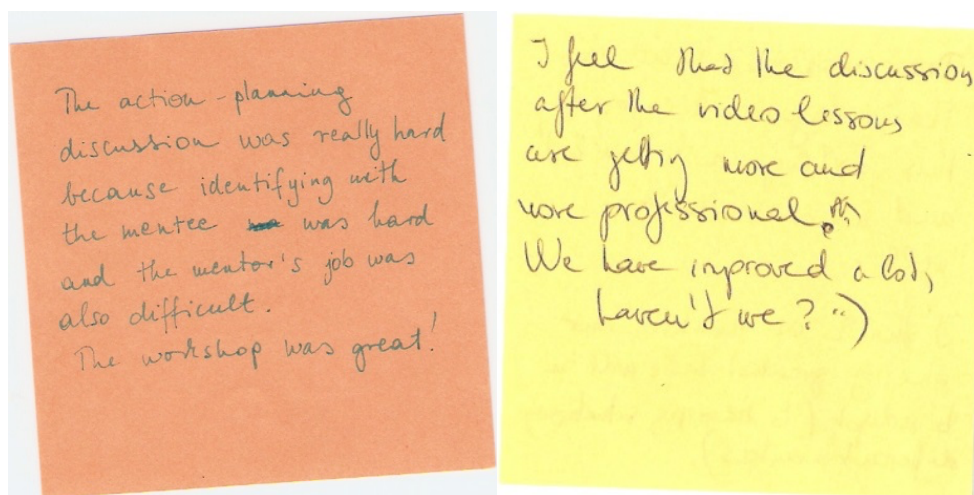 The action-planning
discussion was really hard
because identifying with
the mentee was hard
and the mentor's job was
also difficult.
The workshop was great!
I feel that the discussion
after the video lessons
are getting more and
more professional.
We have improved a lot,
haven't we? :)